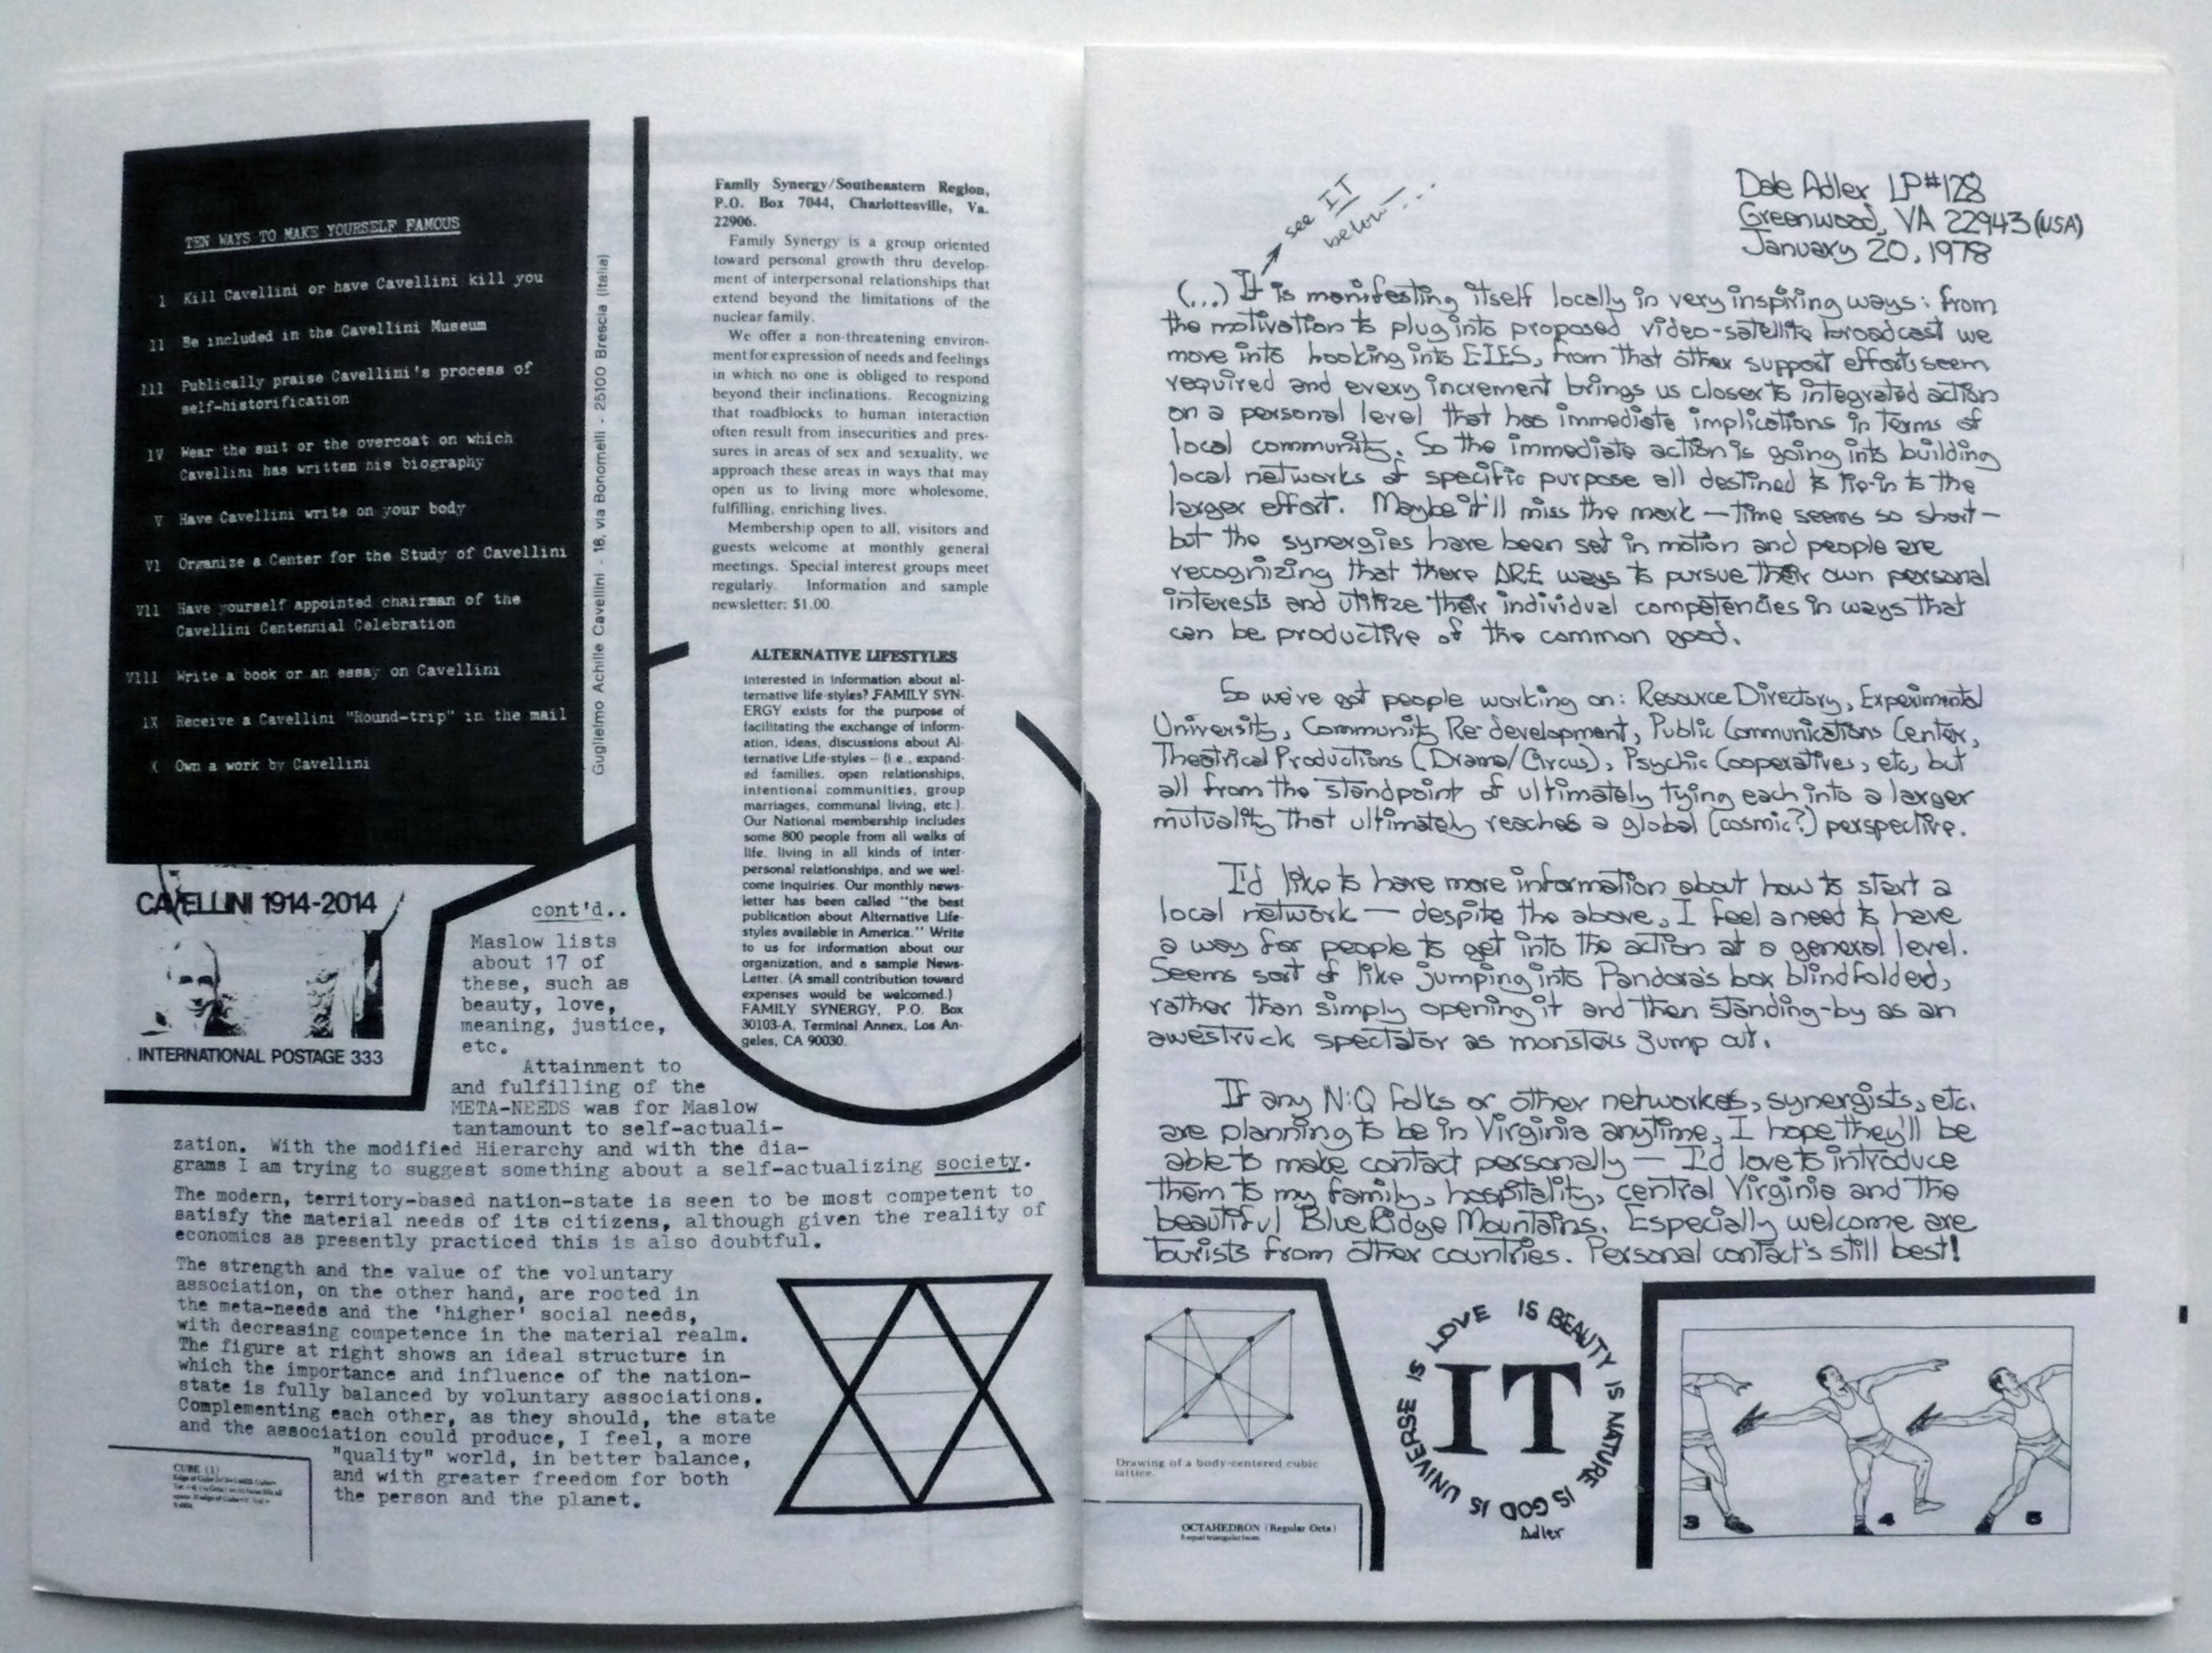 TEN WAYS TO MAKE YOURSELF FAMOUS
1 Kill Cavellini or have Cavellini kill you
11 Be included in the Cavellini Museum
111 Publically praise Cavellini's process of
self-historification
1V Wear the suit or the overcoat on which
Cavellini has written his biography
V Have Cavellini write on your body
V1 Organize a Center for the Study of Cavellini
V11 Have yourself appointed chairman of the
Cavellini Centennial Celebration
V111 Write a book or an essay on Cavellini
1X Receive a Cavellini "Round-trip" in the mail
X Own a work by Cavellini
Guglielmo Achille Cavellini - 16, via Bonomelli - 25100 Brescia (Italia)
CAVELLINI 1914-2014
INTERNATIONAL POSTAGE 333
Family Synergy/Southeastern Region,
P.O. Box 7044, Charlottesville, Va.
22906.
Family Synergy is a group oriented
toward personal growth thru develop-
ment of interpersonal relationships that
extend beyond the limitations of the
nuclear family.
We offer a non-threatening environ-
ment for expression of needs and feelings
in which no one is obliged to respond
beyond their inclinations. Recognizing
that roadblocks to human interaction
often result from insecurities and pres-
sures in areas of sex and sexuality, we
approach these areas in ways that may
open us to living more wholesome,
fulfilling, enriching lives.
Membership open to all, visitors and
guests welcome at monthly general
meetings. Special interest groups meet
regularly. Information and sample
newsletter: $1.00.
ALTERNATIVE LIFESTYLES
Interested in information about al-
ternative life-styles? FAMILY SYN-
ERGY exists for the purpose of
facilitating the exchange of inform-
ation, ideas, discussions about Al-
ternative Life-styles -- (i.e., expand-
ed families, open relationships,
intentional communities, group
marriages, communal living, etc.).
Our National membership includes
some 800 people from all walks of
life, living in all kinds of inter-
personal relationships, and we wel-
come inquiries. Our monthly news-
letter has been called "the best
publication about Alternative Life-
styles available in America." Write
to us for information about our
organization, and a sample News-
Letter. (A small contribution toward
expenses would be welcomed.)
FAMILY SYNERGY, P.O. Box
30103-A, Terminal Annex, Los An-
geles, CA 90030.
cont'd..
Maslow lists
about 17 of
these, such as
beauty, love,
meaning, justice,
etc.
Attainment to
and fulfilling of the
META-NEEDS was for Maslow
tantamount to self-actuali-
zation. With the modified Hierarchy and with the dia-
grams I am trying to suggest something about a self-actualizing society.
The modern, territory-based nation-state is seen to be most competent to
satisfy the material needs of its citizens, although given the reality of
economics as presently practiced this is also doubtful.
The strength and the value of the voluntary
association, on the other hand, are rooted in
the meta-needs and the 'higher' social needs,
with decreasing competence in the material realm.
The figure at right shows an ideal structure in
which the importance and influence of the nation-
state is fully balanced by voluntary associations.
Complementing each other, as they should, the state
and the association could produce, I feel, a more
"quality" world, in better balance,
and with greater freedom for both
the person and the planet.
CUBE (1)
see IT
below...
Dale Adler LP#128
Greenwood, VA 22943 (USA)
January 20, 1978
(...) It is manifesting itself locally in very inspiring ways: from
the motivation to plug into proposed video-satellite broadcast we
move into hooking into EIES, from that other support efforts seem
required and every increment brings us closer to integrated action
on a personal level that has immediate implications in terms of
local community. So the immediate action is going into building
local networks of specific purpose all destined to tie-in to the
larger effort. Maybe it'll miss the mark — time seems so short —
but the synergies have been set in motion and people are
recognizing that there ARE ways to pursue their own personal
interests and utilize their individual competencies in ways that
can be productive of the common good.
So we've got people working on: Resource Directory, Experimental
University, Community Re-development, Public Communications Center,
Theatrical Productions (Drama/Circus), Psychic Cooperatives, etc, but
all from the standpoint of ultimately tying each into a larger
mutuality that ultimately reaches a global (cosmic?) perspective.
I'd like to have more information about how to start a
local network — despite the above, I feel a need to have
a way for people to get into the action at a general level.
Seems sort of like jumping into Pandora's box blindfolded,
rather than simply opening it and then standing-by as an
awestruck spectator as monsters jump out.
If any N:Q folks or other networkers, synergists, etc.
are planning to be in Virginia anytime, I hope they'll be
able to make contact personally — I'd love to introduce
them to my family, hospitality, central Virginia and the
beautiful Blue Ridge Mountains. Especially welcome are
tourists from other countries. Personal contact's still best!
Drawing of a body-centered cubic
lattice.
OCTAHEDRON (Regular Octa)
8 equal triangular faces
IS LOVE IS BEAUTY IS NATURE IS GOD IS UNIVERSE
IT
Adler
3 4 5